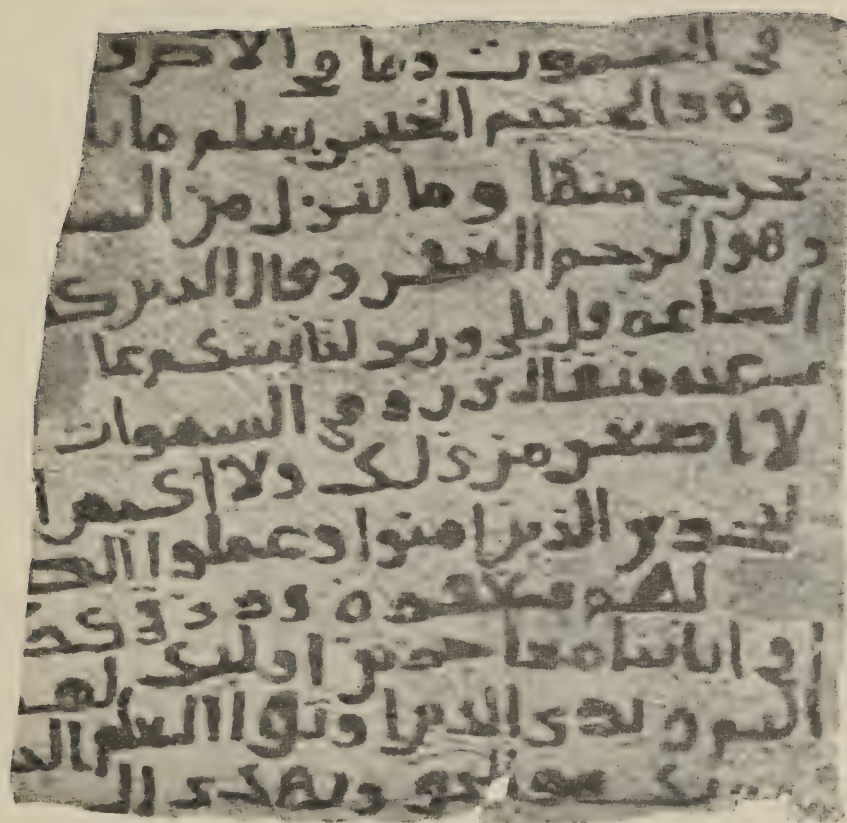 في السموت وما في الارض و
وهو الحكيم الخبير يعلم ما يل
يخرج منها وما ينزل من السم
وهو الرحيم الغفر وقال الذين ك
الساعة قل بلى وربي لتاتينكم عا
عنه مثقال ذرة في السموات
لا اصغر من ذلك ولا اكبر ا
ليجزي الذين امنوا وعملوا الص
لهم مغفرة ورزق كر
في اياتنا معاجزين اولئك لهم
اليم ويرى الذين اوتوا العلم الذ
هو الحق ويهدى ال